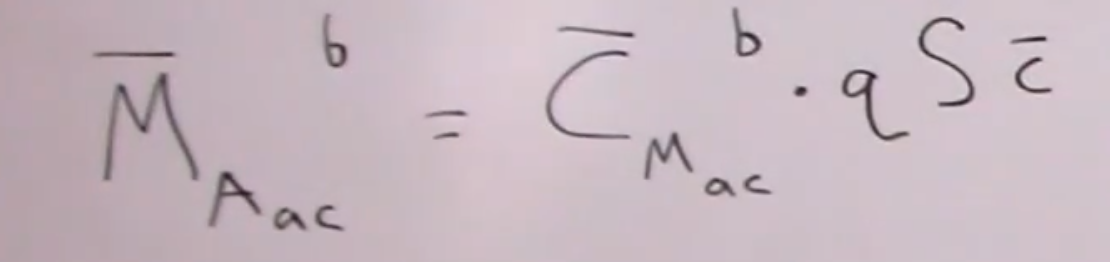 M̅_{A_{ac}}^{b} = C̅_{M_{ac}}^{b} · q S c̅